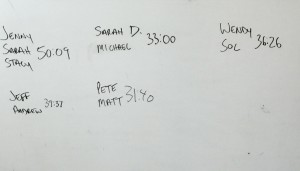 JENNY
SARAH 50:09
STACY
SARAH D.
MICHAEL 33:00
WENDY
SOL 36:26
JEFF
ANDREW 37:37
PETE
MATT 31:40